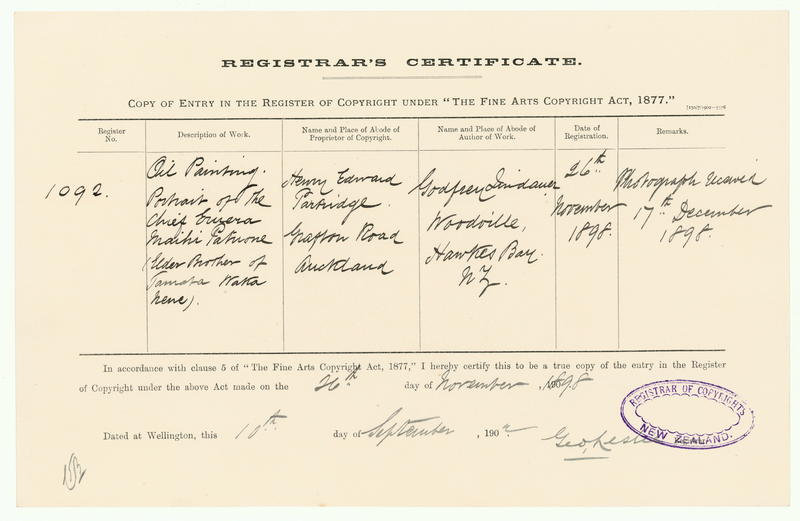 REGISTRAR'S CERTIFICATE.
COPY OF ENTRY IN THE REGISTER OF COPYRIGHT UNDER "THE FINE ARTS COPYRIGHT ACT, 1877."
Register No.
Description of Work.
Name and Place of Abode of Proprietor of Copyright.
Name and Place of Abode of Author of Work.
Date of Registration.
Remarks.
1092.
Oil Painting.
Portrait of the
Chief Eruera
Maihi Patuone
(Elder Brother of
Tamata Waka
Nene).
Henry Edward
Partridge.
Grafton Road
Auckland
Godfrey Lindauer
Woodville,
Hawkes Bay.
NZ.
26th
November
1898.
Photograph received
17th December
1898.
In accordance with clause 5 of "The Fine Arts Copyright Act, 1877," I hereby certify this to be a true copy of the entry in the Register
of Copyright under the above Act made on the 26th day of November, 1898
Dated at Wellington, this 10th day of September, 190
REGISTRAR OF COPYRIGHTS
NEW ZEALAND.